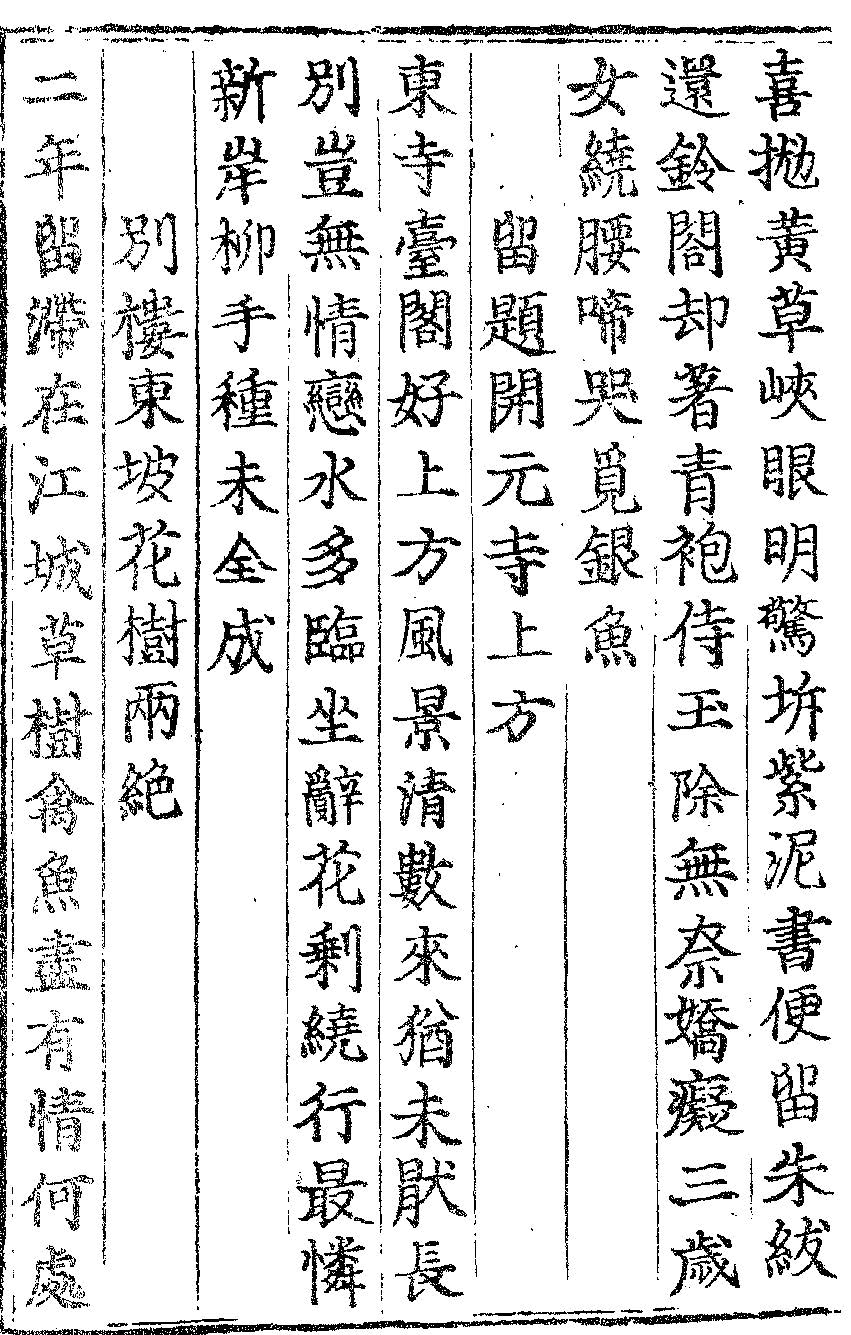 喜拋黃草峽眼明驚坼紫泥書便留朱紱
還鈴閣却著青袍侍玉除無奈嬌癡三歲
女繞腰啼哭覓銀魚
留題開元寺上方
東寺臺閣好上方風景清數來猶未猒長
別豈無情戀水多臨坐辭花剩繞行最憐
新岸柳手種未全成
別樓東坡花樹兩絕
二年留滯在江城草樹禽魚盡有情何處